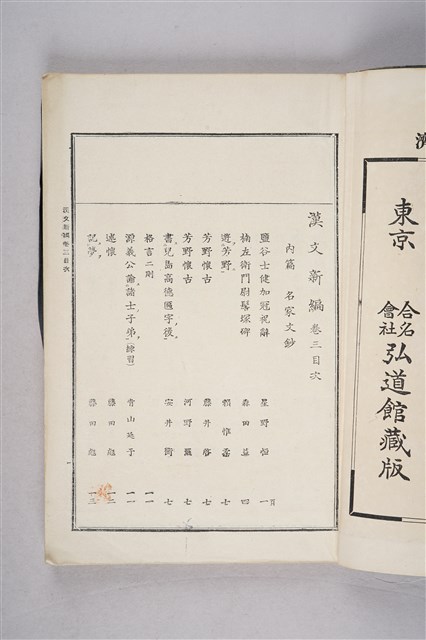 東京 合名會社 弘道館藏版
漢文新編卷三目次
內篇 名家文鈔
鹽谷士健加冠祝辭 星野恒 一頁
楠左衛門尉髻塚碑 森田益 四
遊芳野 賴惟柔 七
芳野懷古 藤井啓 七
芳野懷古 河野羆 七
書兒島高德匾字後 安井衡 七
格言二則 一一
源義公諭諸士子弟(練習) 青山延于 一一
述懷 藤田彪 一二
記夢 藤田彪 一三
漢文新編卷三目次